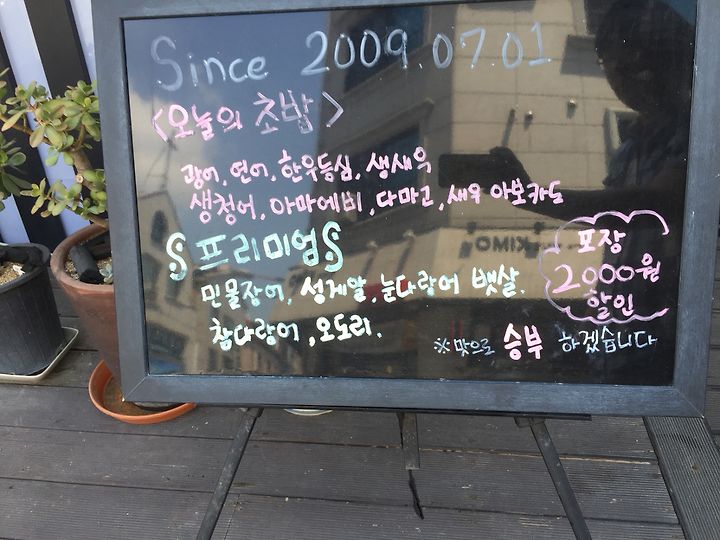 Since 2009.07.01
<오늘의 초밥>
광어, 연어, 한우등심, 생새우
생청어, 아마에비, 다마고, 새우 아보카도
프리미엄
민물장어, 성게알, 눈다랑어 뱃살.
참다랑어, 오도리.
포장
2000원
할인
※맛으로 승부 하겠습니다
KIMO